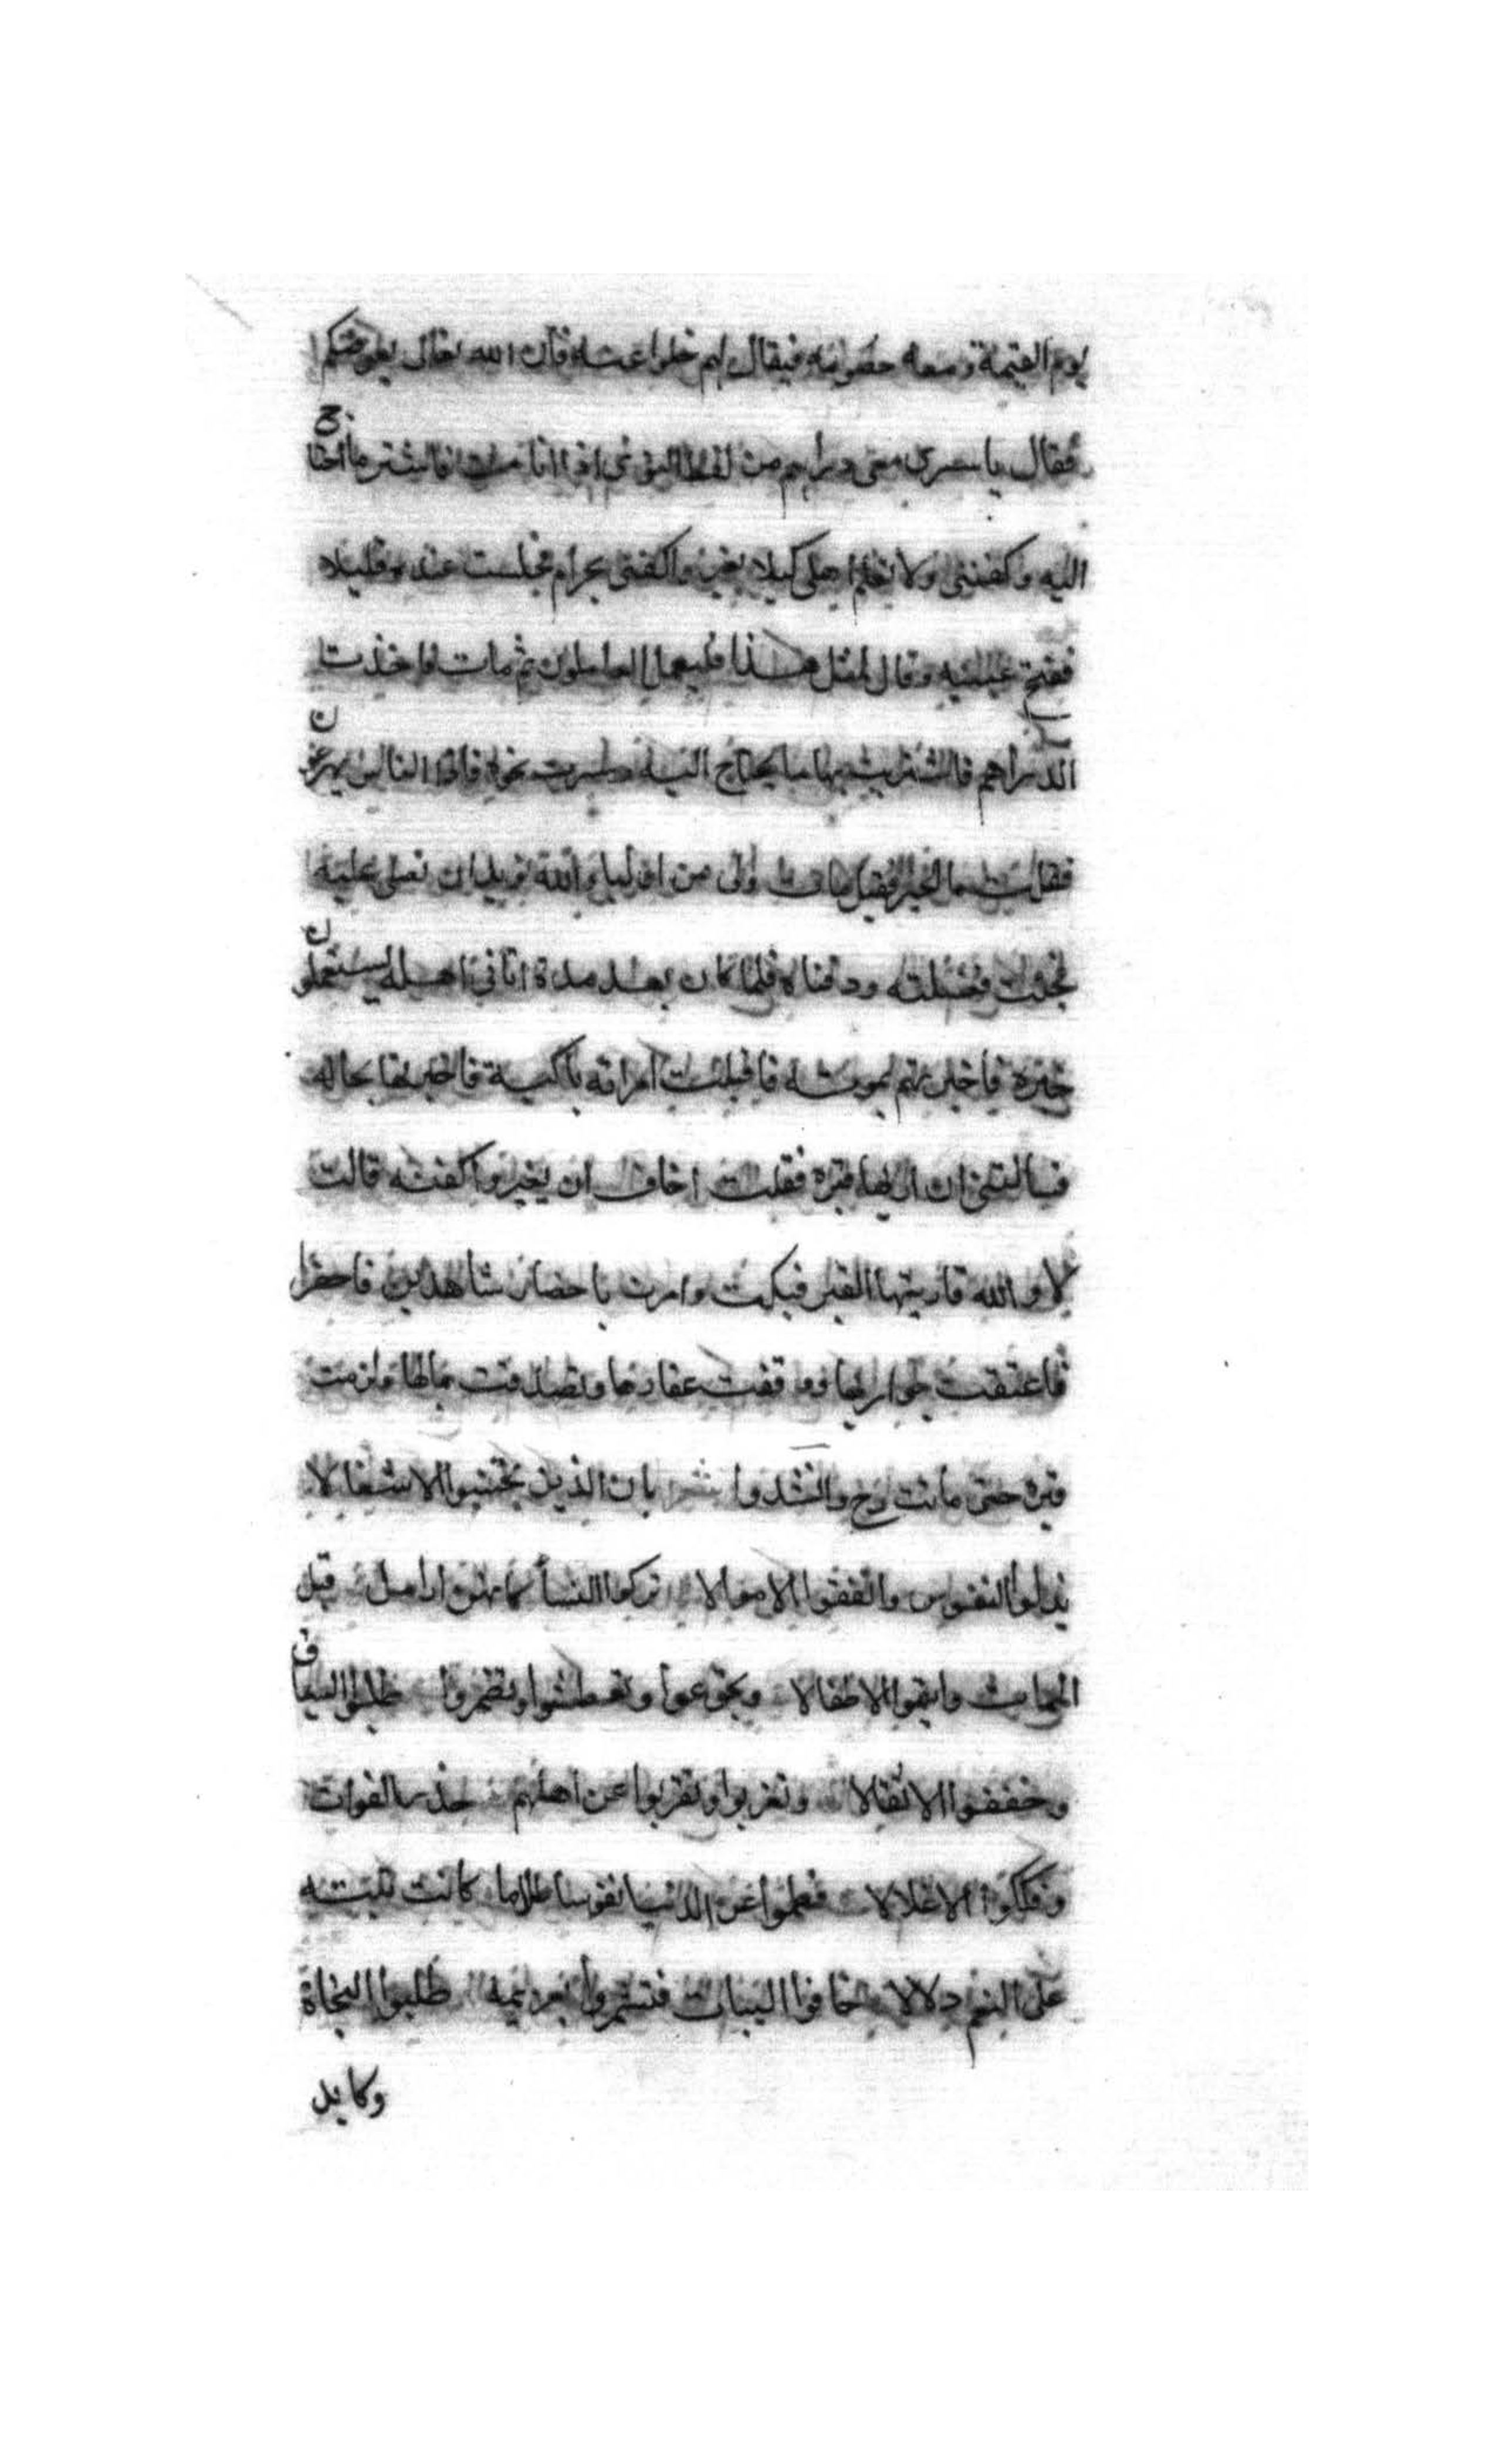 يوم القيمة ومعه خصومه فيقال لهم خلوا عنه فان الله تعالى يعوضكم
فقال يا سرى معى دراهم من لقط النوى اذا انا مت فاشتر ما احتاج
اليه وكفننى ولا تعلم اهلى كيلا يغيروا كفنى بحرام فجلست عنده قليلا
ففتح عينيه وقال لمثل هذا فليعمل العاملون ثم مات فاخذت
الدراهم فاشتريت بها ما يحتاج اليه وسرت نحوه فاذا الناس يهرعون
فقلت ما الخبر فقيل مات ولى من اولياء الله نريد ان نصلى عليه
فجئت فغسلته ودفناه فلما كان بعد مدة اتانى اهله يستعلمون
خبره فاخبرتهم بموته فاقبلت امراته باكية فاخبرتها بحاله
فسالتنى ان اريها قبره فقلت اخاف ان يغيروا كفنه قالت
لا والله فاريتها القبر فبكت وامرت باحضار شاهدين فاحضرا
فاعتقت جواريها ووقفت عقارها وتصدقت بمالها ولزمت
قبره حتى ماتت رح وانشدوا شعر بان الذين تجنبوا الاشغالا
بذلوا النفوس وانفقوا الاموالا تركوا النسأ كانهن ارامل قبل
الممات وايتموا الاطفالا وتجوعوا وتعطشوا وتضمروا طلبوا السباق
وخففوا الاثقالا وتغربوا وتقربوا عن اهلهم حذر الفوات
وفككوا الاغلالا فطموا عن الدنيا نفوسا طالما كانت تتيه
على النعيم دلالا خافوا البيات فتشمروا بعزيمة طلبوا النجاة
وكابد